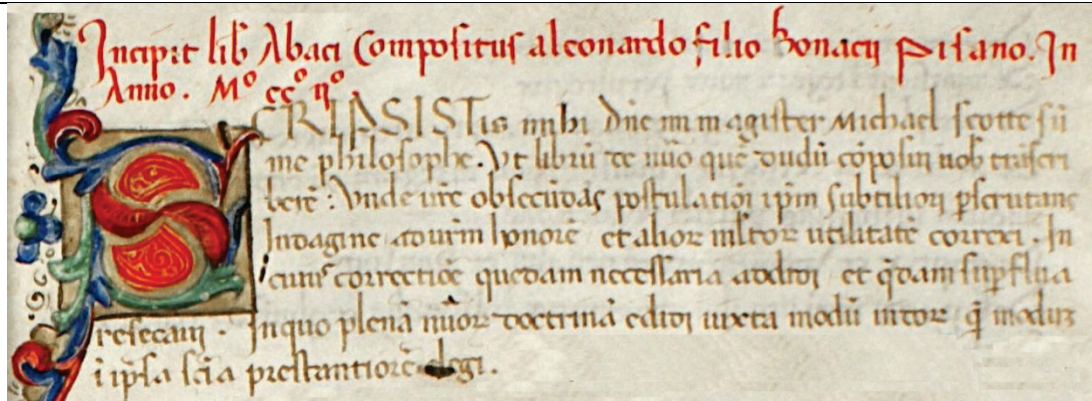 Incipit lib̃ Abaci Compositus a leonardo filio bonacij Pisano. In
Anno. Mº ccº ijº
SCRIPSISTis mihi dñe mi magister Michael scotte sũ
me philosophe. Vt librũ de nũo quẽ dudũ cõposui uob̃ trãscri
berẽ: Vnde ur̃e obsecũdãs postulatiõi ip̃m subtiliori p̃scrutans
Indagine ad ur̃m honorẽ et alior̃ ml̃tor̃ utilitatẽ correxi. In
cuius correctiõe quedam necessaria addidi et q̃dam sup̃flua
resecaui. In quo plenã nũor̃ doctrinã edidi iuxta modũ indor̃ q̃ modũ
i ip̃sa sc̃ia prestantiorẽ elegi.